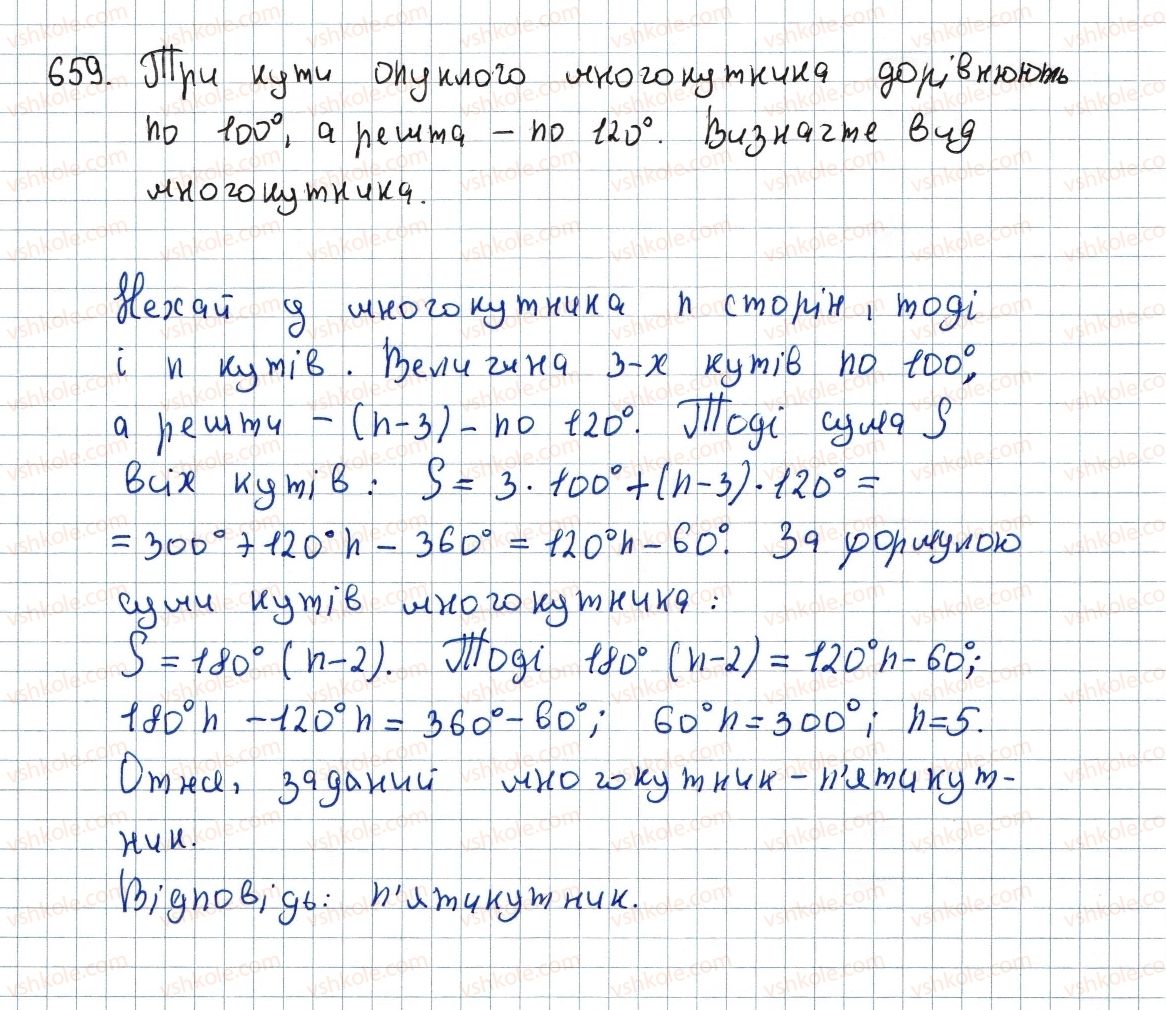 659. Три кути опуклого многокутника дорівнюють
по 100°, а решта – по 120°. Визначте вид
многокутника.
Нехай у многокутника n сторін, тоді
і n кутів. Величина 3-х кутів по 100°,
а решти – (n-3) – по 120°. Тоді сума S
всіх кутів: S = 3 · 100° + (n-3) · 120° =
= 300° + 120°n – 360° = 120°n – 60°. За формулою
суми кутів многокутника:
S = 180° (n-2). Тоді 180° (n-2) = 120°n – 60°;
180°n – 120°n = 360° – 60°; 60°n = 300°; n = 5.
Отже, заданий многокутник – п'ятикут-
ник.
Відповідь: п'ятикутник.